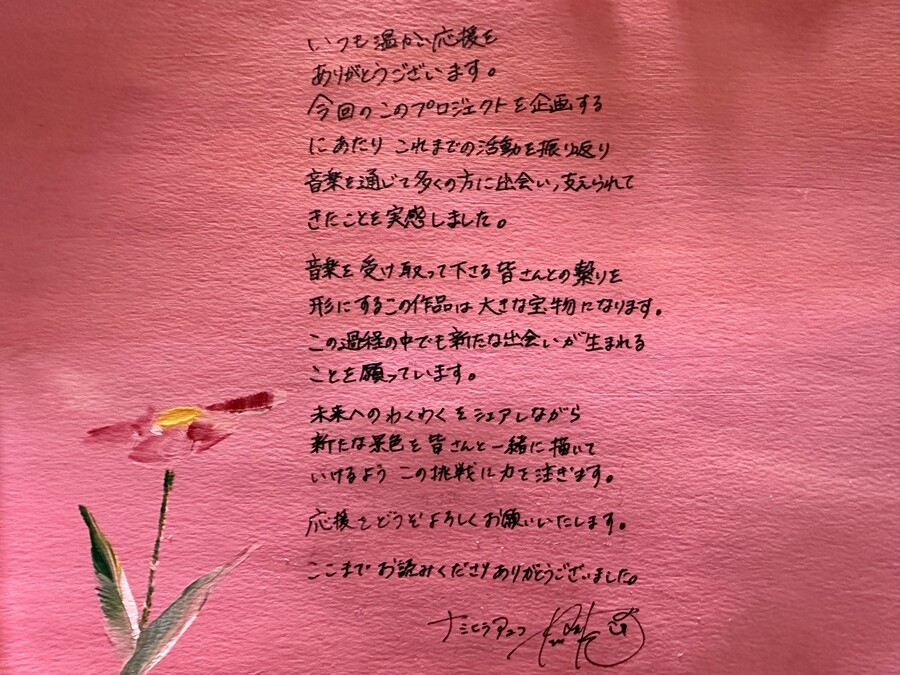 いつも温かい応援を
ありがとうございます。
今回のこのプロジェクトを企画する
にあたり これまでの活動を振り返り
音楽を通じて多くの方に出会い、支えられて
きたことを実感しました。
音楽を受け取って下さる皆さんとの繋りを
形にするこの作品は大きな宝物になります。
この過程の中でも新たな出会いが生まれる
ことを願っています。
未来へのわくわくをシェアしながら
新たな景色を皆さんと一緒に描いて
いけるよう この挑戦に力を注ぎます。
応援をどうぞよろしくお願いいたします。
ここまでお読みくださりありがとうございました。
ナミヒラアユコ